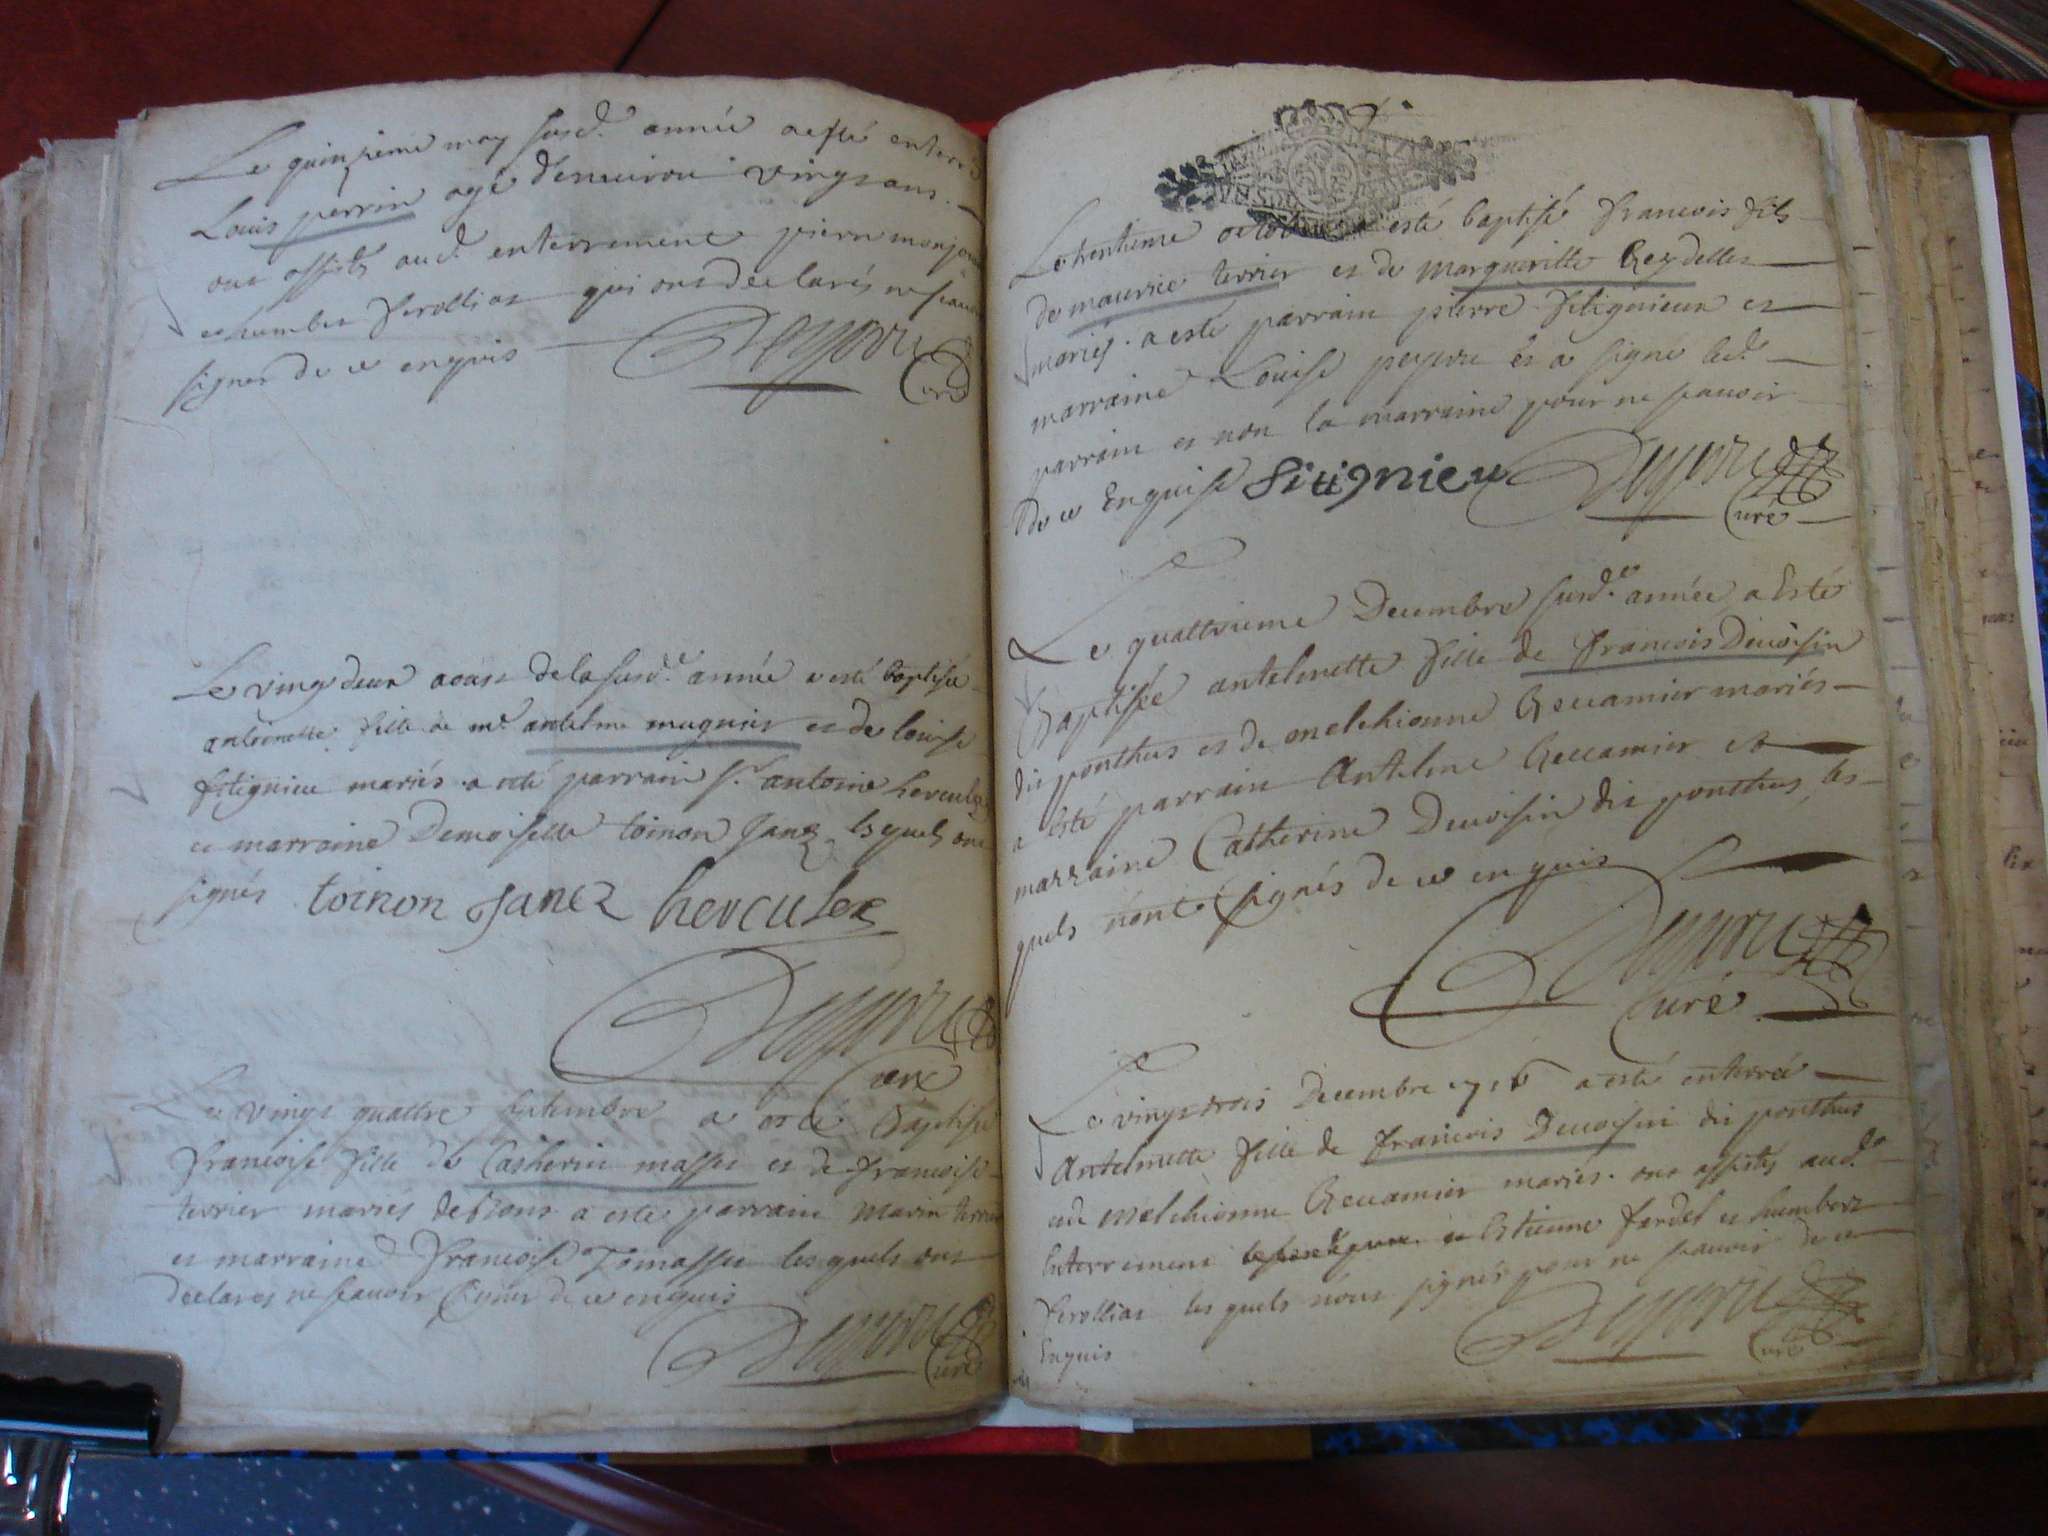 Le quinsieme may susd. année a esté enterré
Louis perrin agé denuiron vingt ans.
ont assistés aud. enterrement pierre monjour
et humber ferollias qui ont declarés ne scauoir
signer de ce enquis
Curé
Le vingt deux aoust de la susd.e année a esté baptisée
antoinette fille de m.e antelme mugnier et de louise
fitignieu mariés a esté parrain s.r antoine hercules
et marraine Demoiselle toinon Janez lesquels ont
signés toinon Janez hercules
Curé
Le vingt quattre septembre a esté Baptisée
francoise fille de Catherin masse et de francoise
terrier mariés a esté parrain marin terrier
et marraine francoise Tomasse lesquels ont
declarés ne scauoir signer de ce enquis
Curé
Le trentieme octobre a esté baptisé francois fils
de maurice terrier et de margueritte Reydellet
mariés. a esté parrain pierre fitignieux et
marraine Louise peyere et a signé led.
parrain et non la marraine pour ne scauoir
de ce Enquise Fitignieu
Curé
Le quattrieme Decembre susd.e année a Esté
Baptisée antelmette fille de francois Deuoisin
dit ponthus et de melchionne Reccamier mariés
a Esté parrain Antelme Reccamier et
marraine Catherine Deuoisin dit ponthus, les
quels n'ont signés de ce enquis
Curé
Le vingt trois Decembre 1716 a esté enterrée
Antelmette fille de francois Deuoisin dit ponthus
et de melchionne Reccamier mariés. ont assistés aud.
Enterrement Estienne fardel et humbert
ferollias lesquels n'ont signés pour ne scauoir de ce
Enquis
Curé